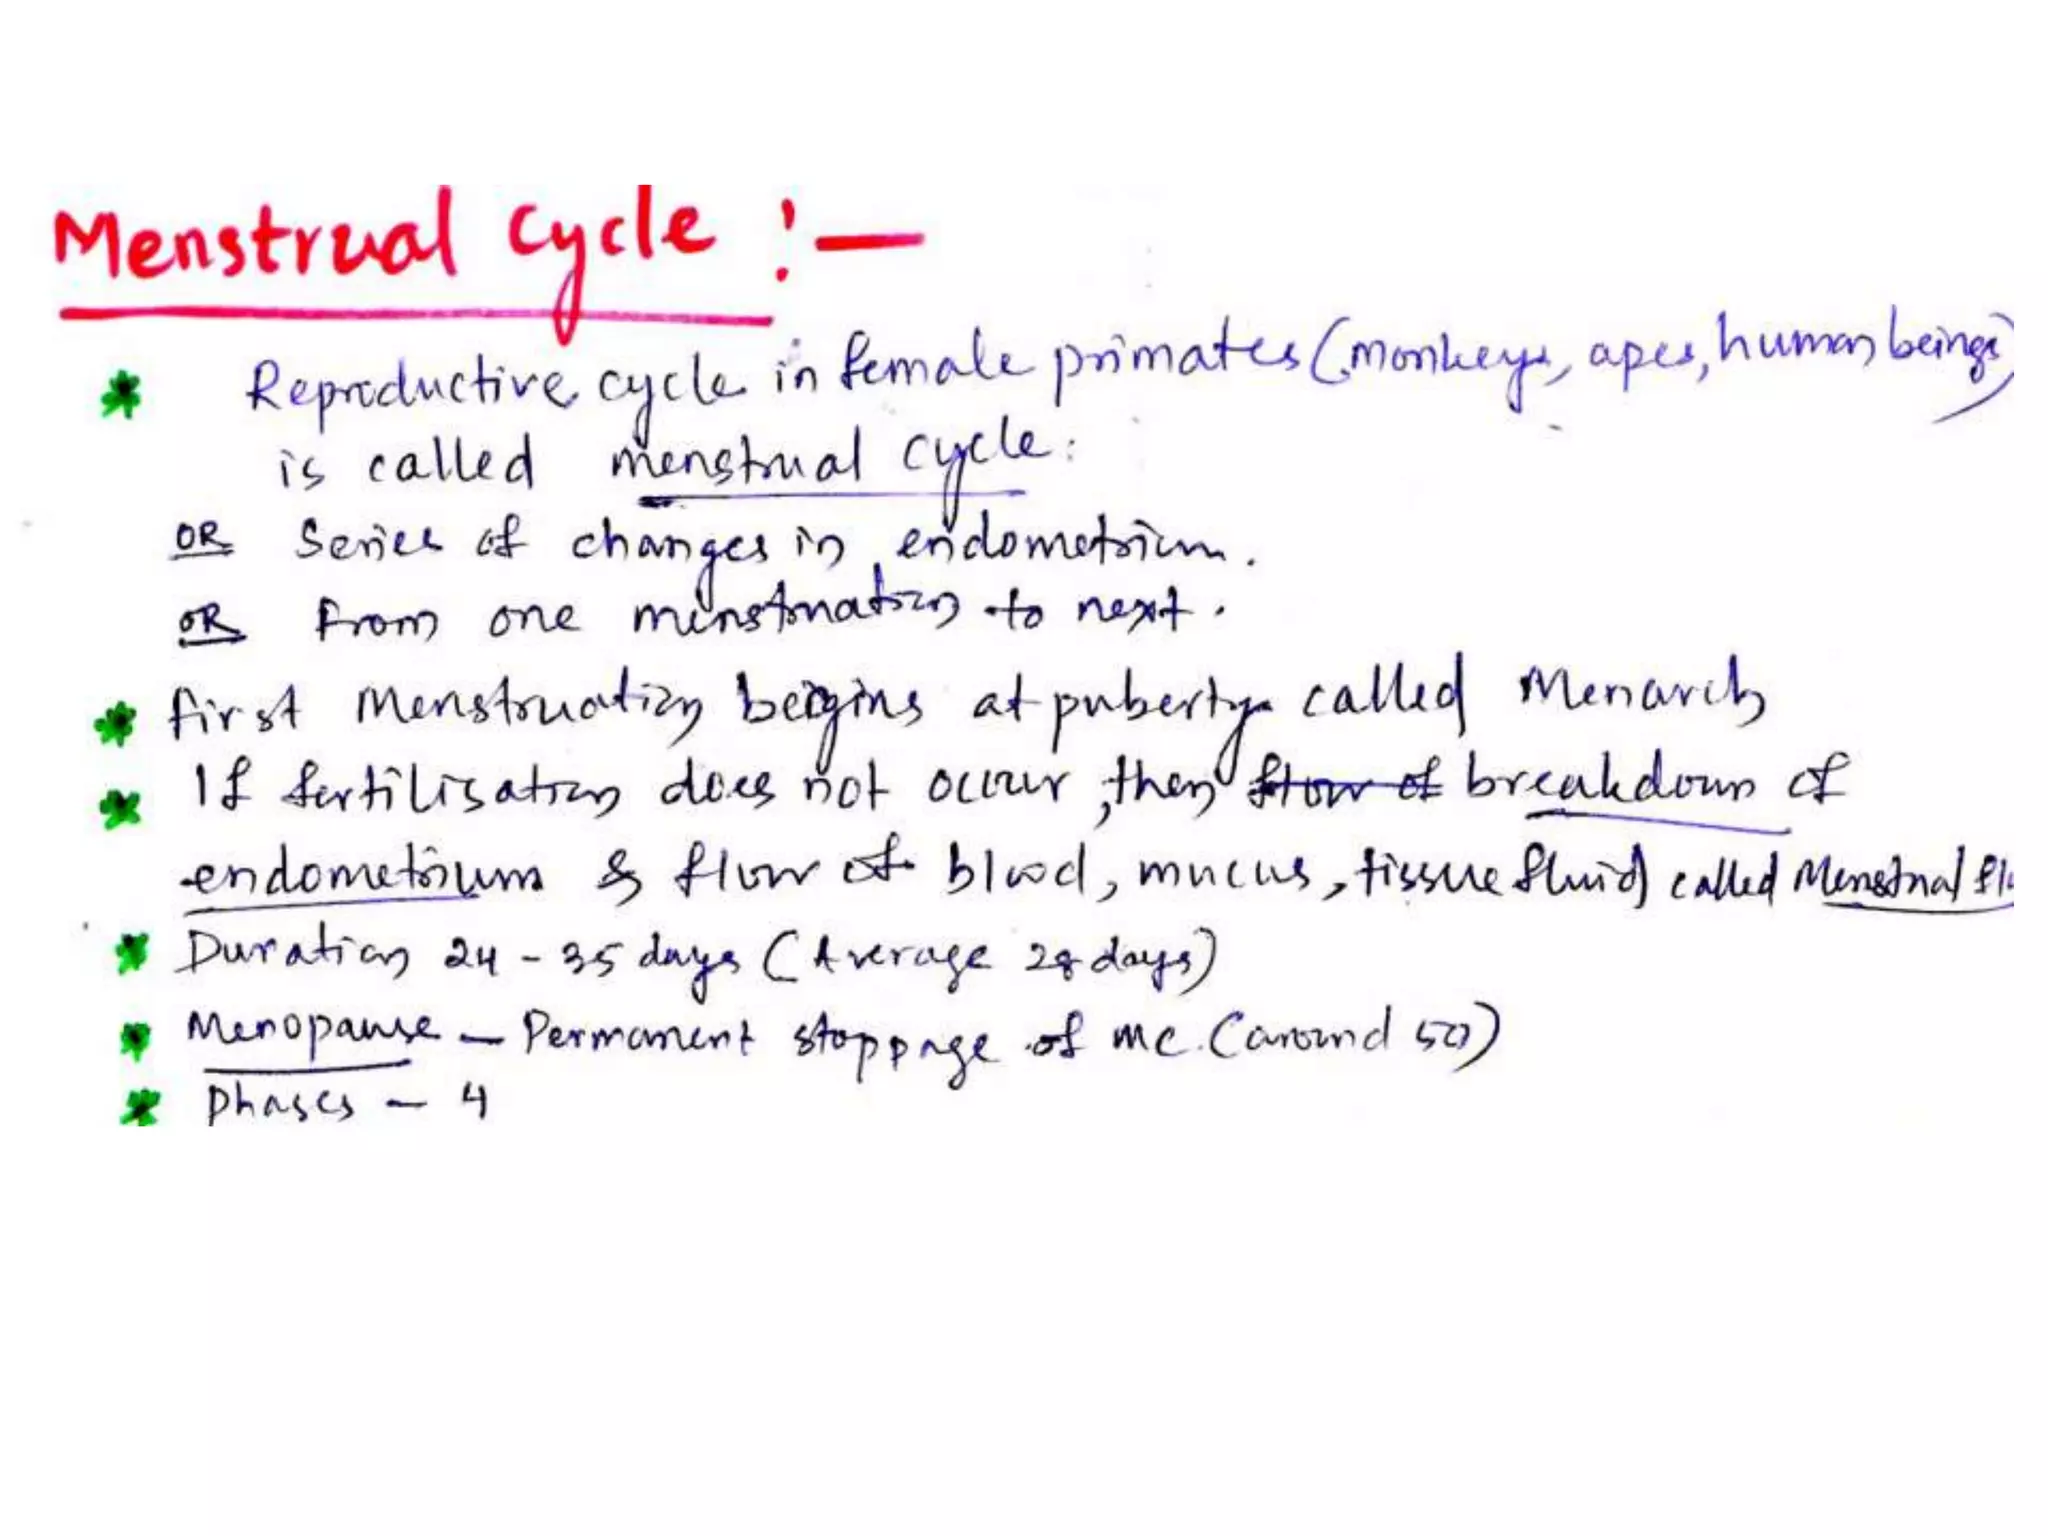 Menstrual Cycle :-
* Reproductive cycle in female primates (monkeys, apes, human beings)
is called menstrual cycle.
OR Series of changes in endometrium.
OR From one menstruation to next.
* First Menstruation begins at puberty called Menarch
* If fertilisation does not occur, then flow of breakdown of
endometrium & flow of blood, mucus, tissue fluid called Menstrual
* Duration 24-35 days (Average 28 days)
* Menopause - Permanent stoppage of MC. (around 50)
* Phases - 4